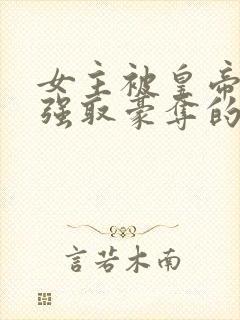 女主被皇帝
强取豪夺的
言若木南